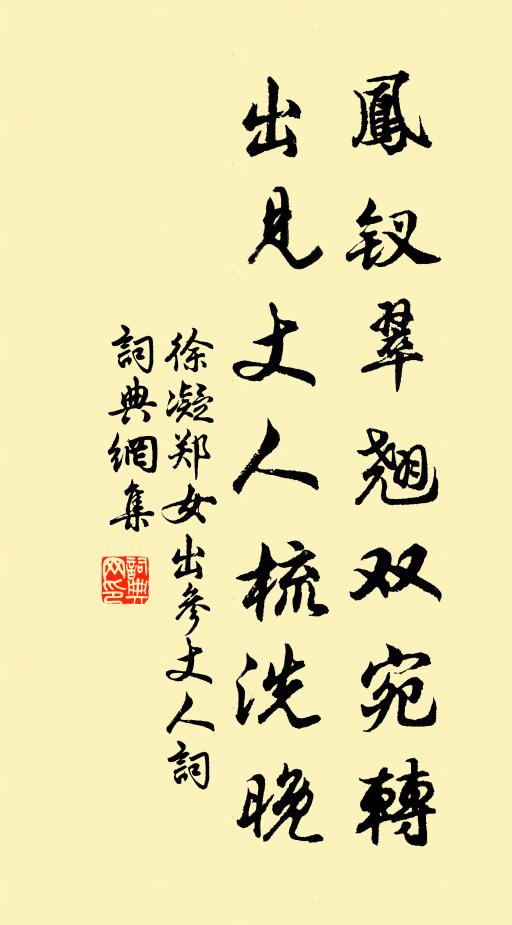 鳳钗翠翹双宛轉
出見丈人梳洗晚
徐凝郑女出參丈人詞
詞典網集
詞典網印